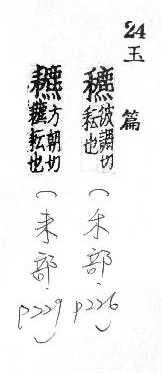 24
玉篇
穮彼調切耘也（禾部．P226）
䎱方朝切䎱耘也（耒部．P229）